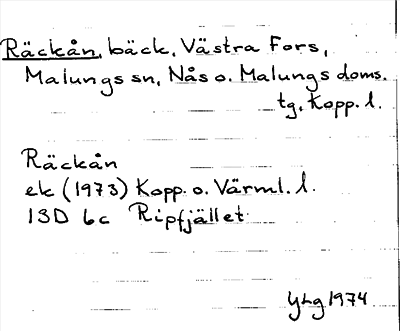 Räckån, bäck, Västra Fors,
Malungs sn, Nås o. Malungs doms.
tg, Kopp. l.
Räckån
ek (1973) Kopp. o. Värml. l.
13D 6c Ripfjället
YLg 1974